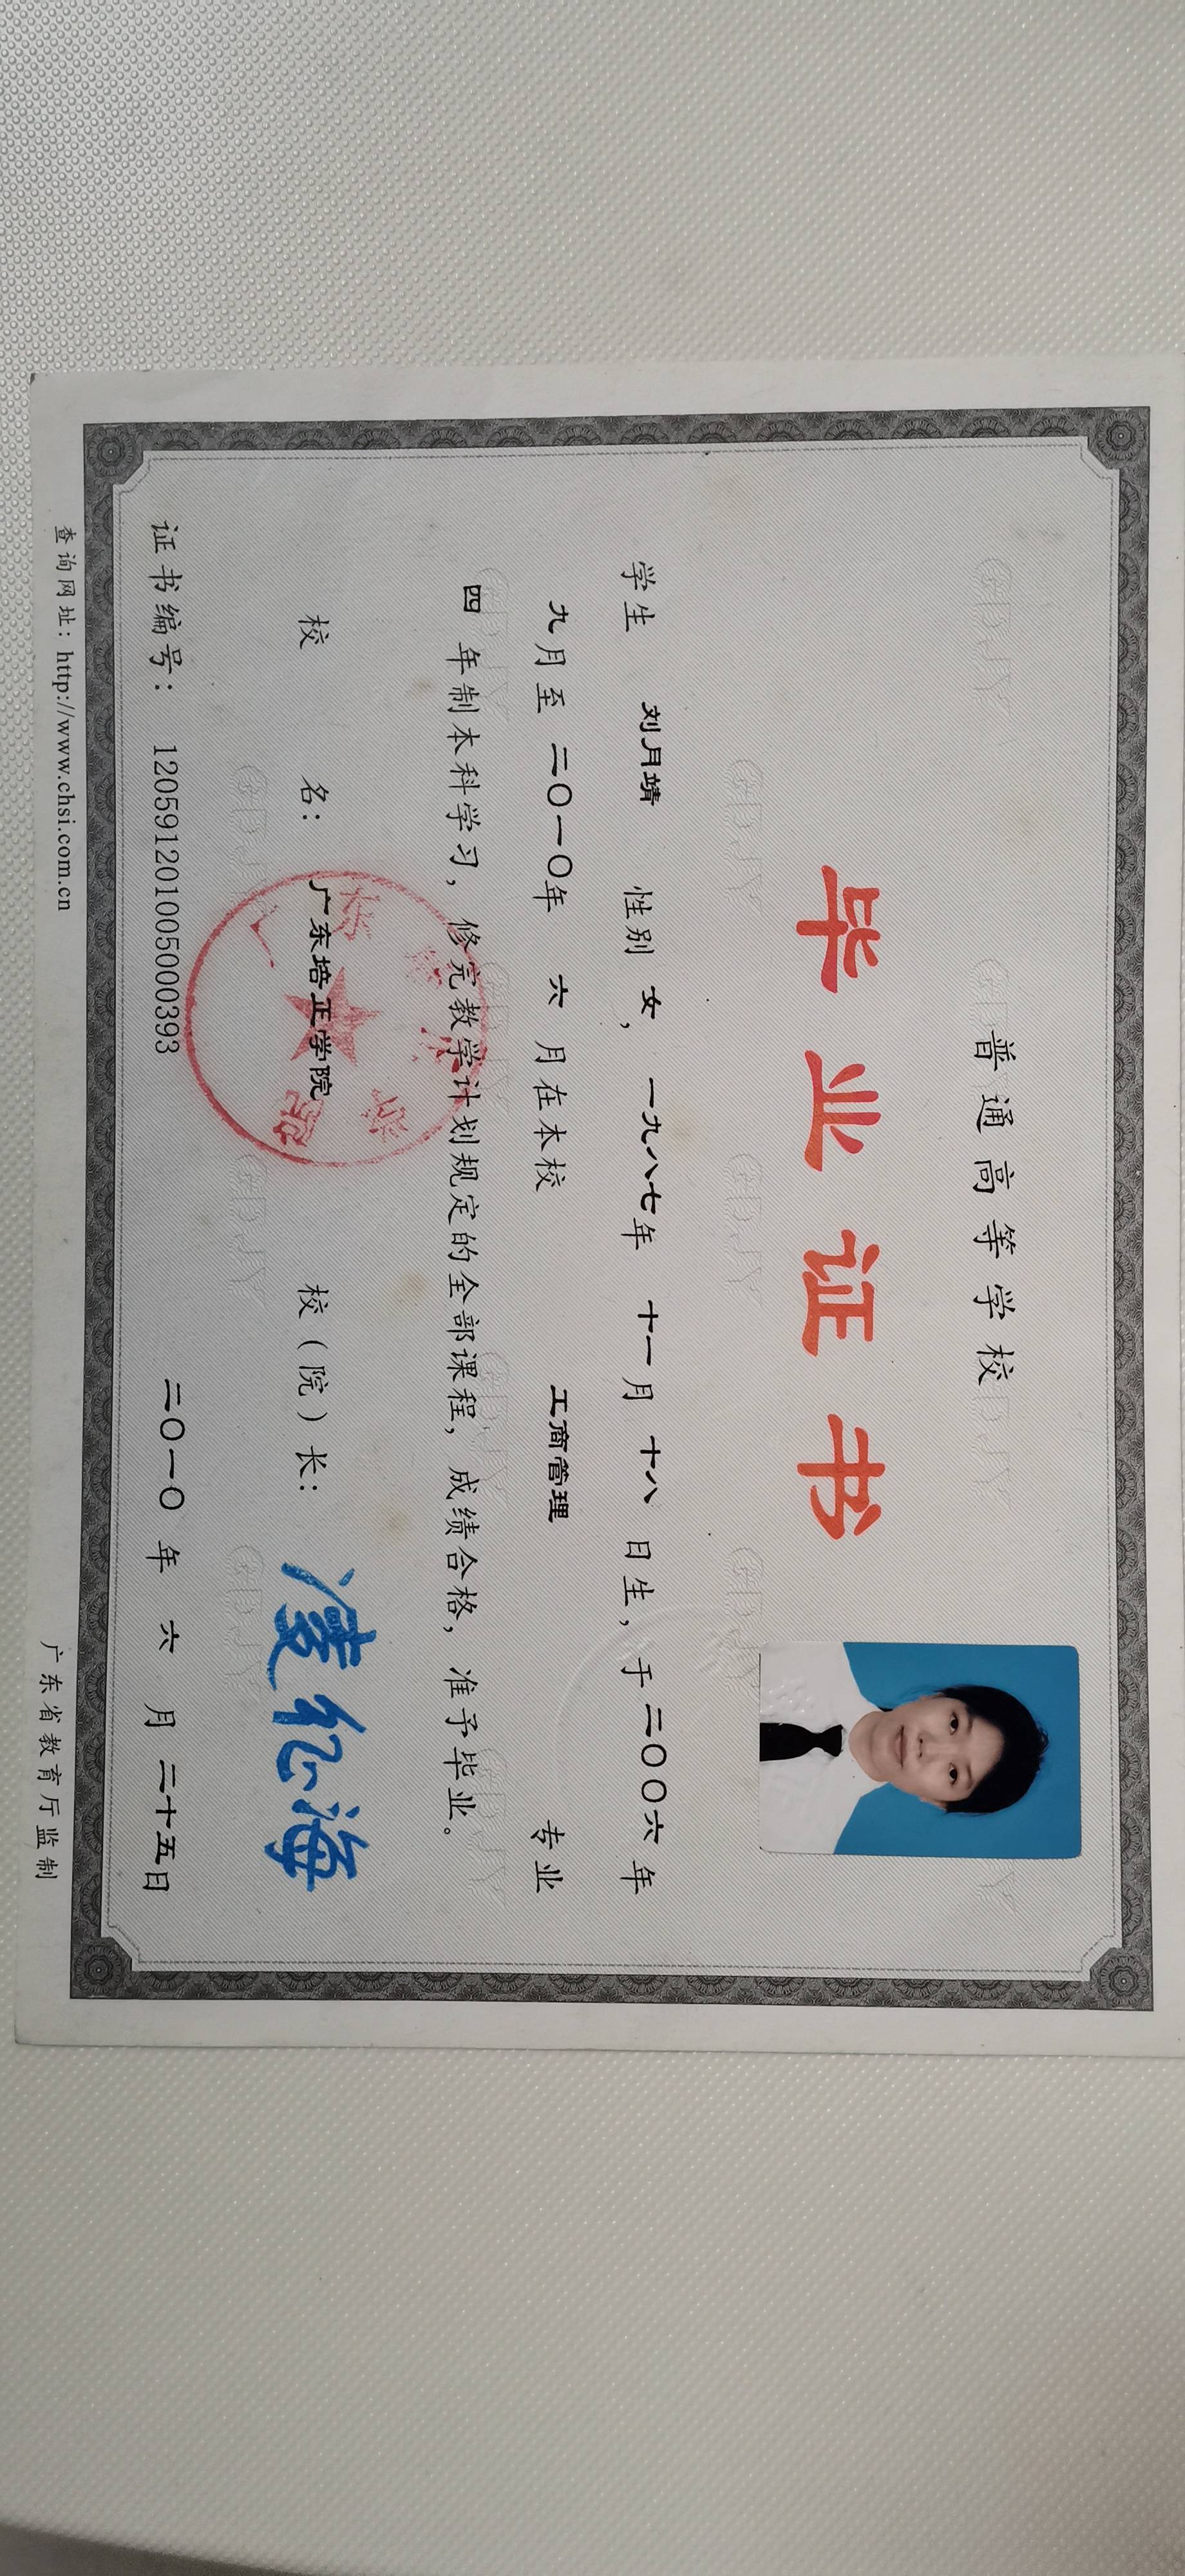 普通高等学校
毕业证书
学生 刘月靖 性别 女，一九八七年 十一月 十八 日生，于二〇〇六年
九月至 二〇一〇年 六 月在本校 工商管理 专业
四 年制本科学习，修完教学计划规定的全部课程，成绩合格，准予毕业。
校 名：广东培正学院 校（院）长：
证书编号：120591201005000393 二〇一〇 年 六 月 二十五日
查询网址：http://www.chsi.com.cn 广东省教育厅监制